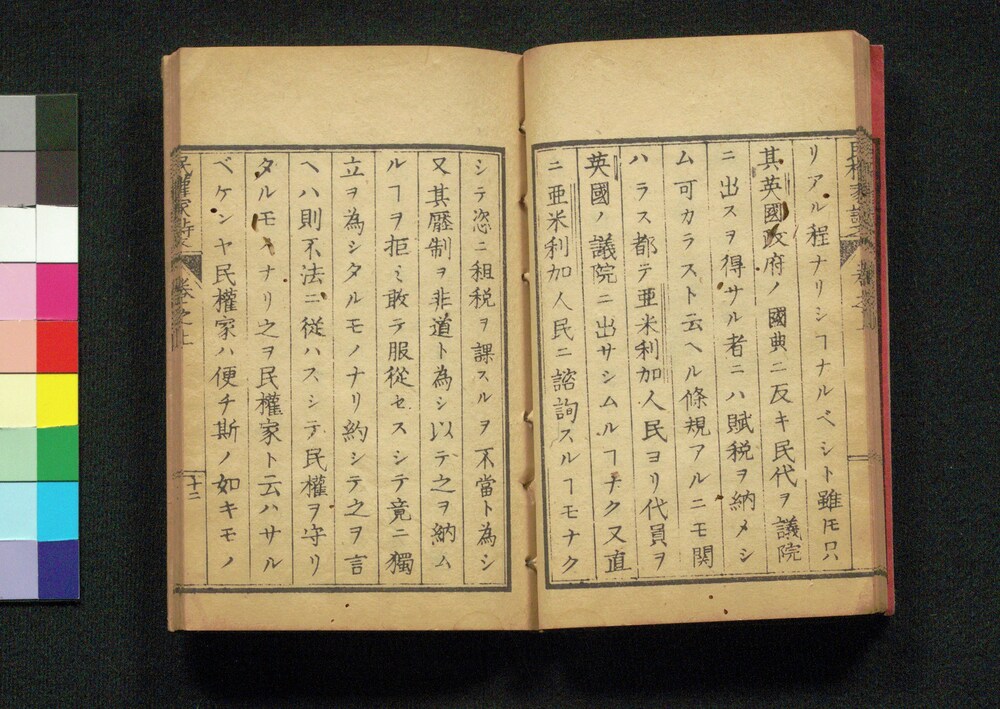 リアル程ナリシヿナルベシト雖モ只
其英國政府ノ國典ニ反キ民代ヲ議院
ニ出スヲ得サル者ニハ賦税ヲ納メシ
ム可カラスト云ヘル條規アルニモ関
ハラス都テ亜米利加人民ヨリ代員ヲ
英國ノ議院ニ出サシムルヿナク又直
ニ亜米利加人民ニ諮詢スルヿモナク
シテ恣ニ租税ヲ課スルヲ不當ト為シ
又其壓制ヲ非道ト為シ以テ之ヲ納ム
ルヿヲ拒ミ敢テ服從セスシテ竟ニ獨
立ヲ為シタルモノナリ約シテ之ヲ言
ヘハ則不法ニ從ハスシテ民權ヲ守リ
タルモノナリ之ヲ民權家ト云ハサル
ベケンヤ民權家ハ便チ斯ノ如キモノ
十二